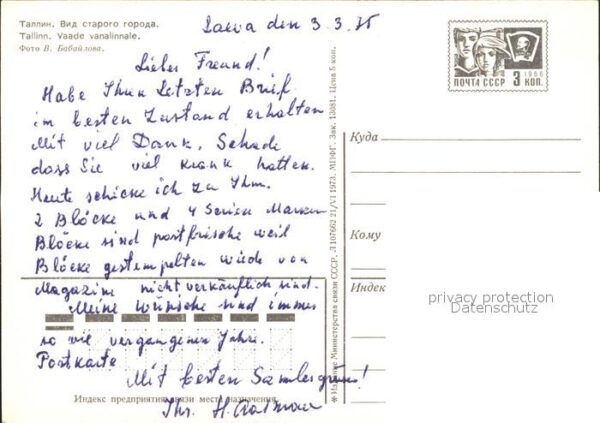 Таллин. Вид старого города.
Tallinn. Vaade vanalinnale.
Фото В. Бабайлова.
Laeva den 3.3.75
Lieber Freund!
Habe Ihnen Letzten Brief
im besten Zustand erhalten
Mit viel Dank. Schade
dass Sie viel krank hatten.
Heute schicke ich zu Ihm.
2 Blöcke und 4 Serien Marken
Blöcke sind postfrische weil
Blöcke gestempelten würde von
Magazine nicht verkäuflich sind.
Meine wünsche sind immer
so wie vergangenen Jahre.
Postkarte
Mit besten Samlergrüss!
Ihr. H.
Индекс предприятия связи места назначения
Министерства связи СССР. Л 107662 21/VI 1973. МПФГ. Зак. 13081. Цена 5 коп.
1966
ПОЧТА СССР 3 КОП.
Куда
Кому
Индекс
privacy protection
Datenschutz